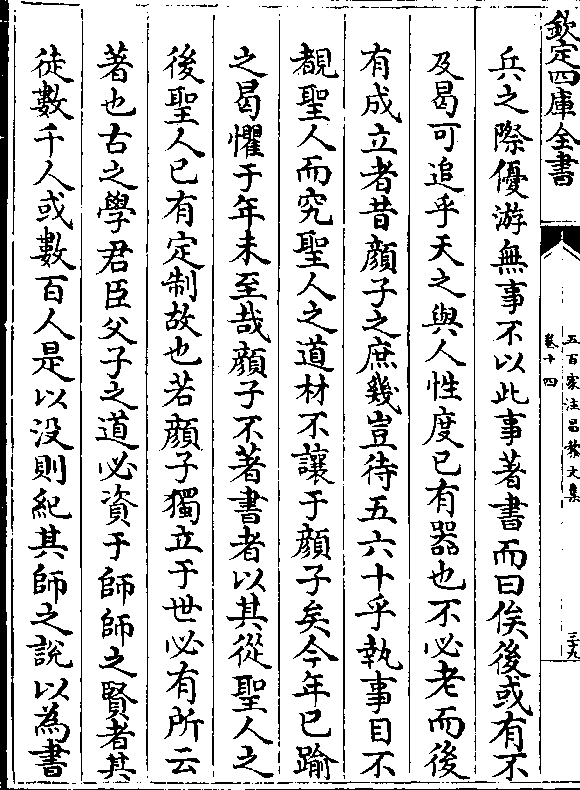 欽定四庫全書
五百家注昌黎文集
卷十四
三九
兵之際優游無事不以此事著書而曰俟後或有不
及曷可追乎天之與人性度已有器也不必老而後
有成立者昔顔子之庶幾豈待五六十乎執事目不
覩聖人而究聖人之道材不讓于顔子矣今年已踰
之曷懼于年未至哉顔子不著書者以其從聖人之
後聖人已有定制故也若顔子獨立于世必有所云
著也古之學君臣父子之道必資于師師之賢者其
徒數千人或數百人是以没則紀其師之說以為書